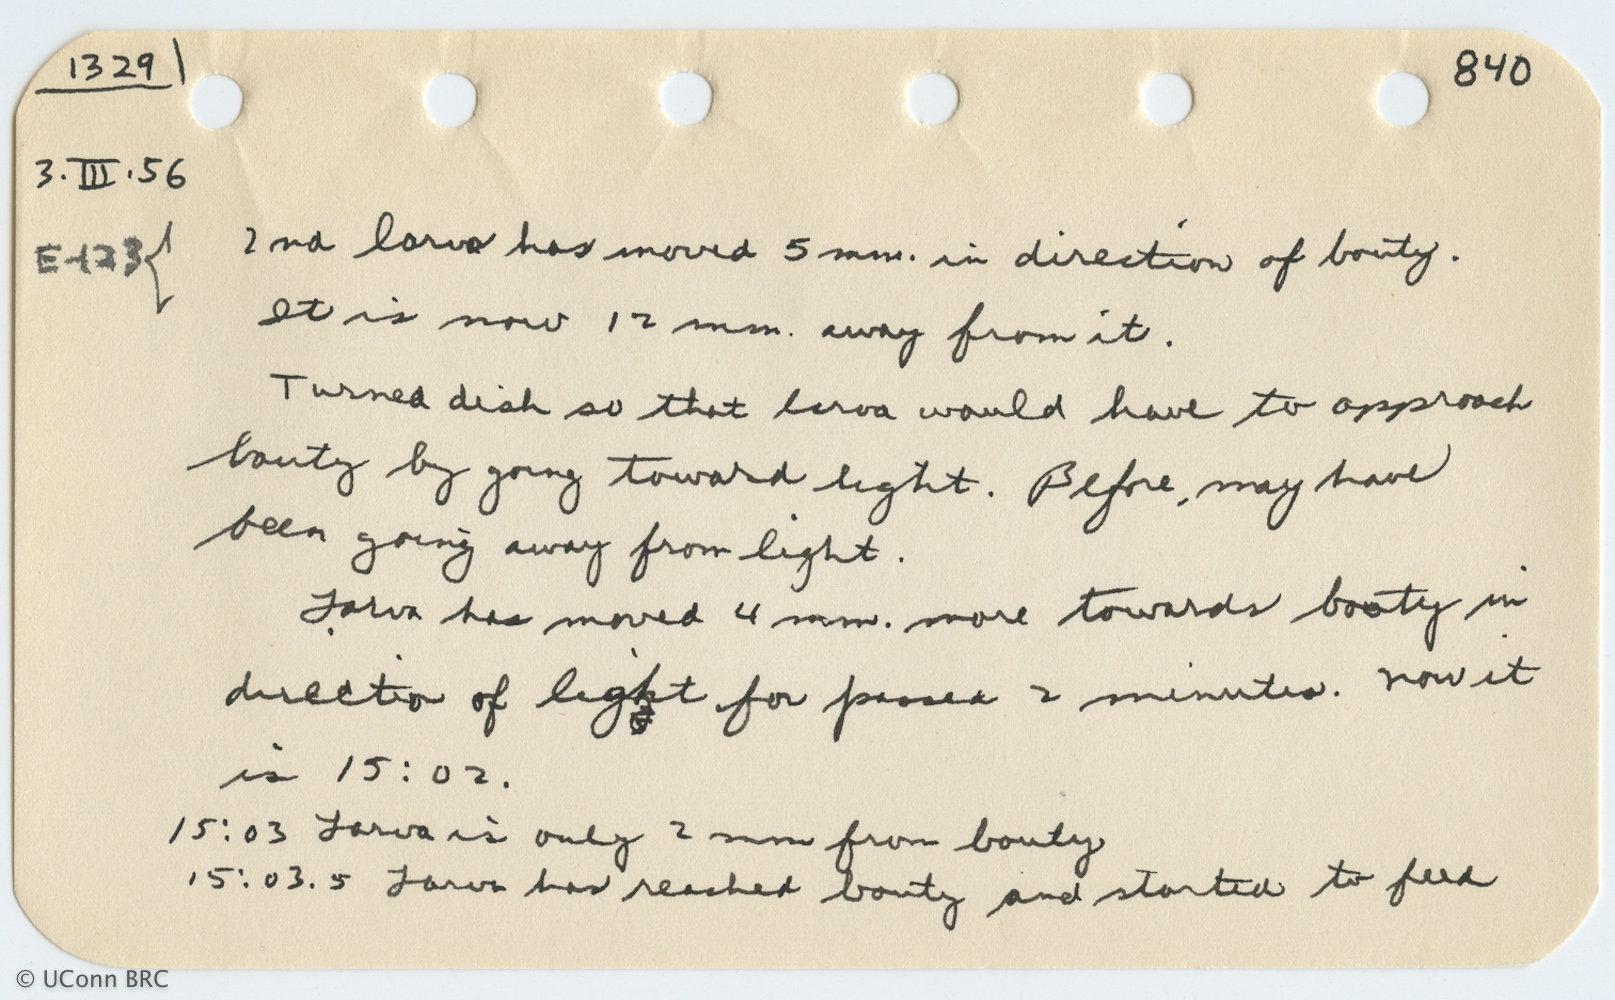 1329
840
3.III.56
E-123{ 2nd larva has moved 5 mm. in direction of booty.
It is now 12 mm. away from it.
Turned dish so that larva would have to approach
booty by going toward light. Before, may have
been going away from light.
Larva has moved 4 mm. more towards booty in
direction of light for passed 2 minutes. now it
is 15:02.
15:03 Larva is only 2 mm from booty
15:03.5 Larva has reached booty and started to feed
© UConn BRC